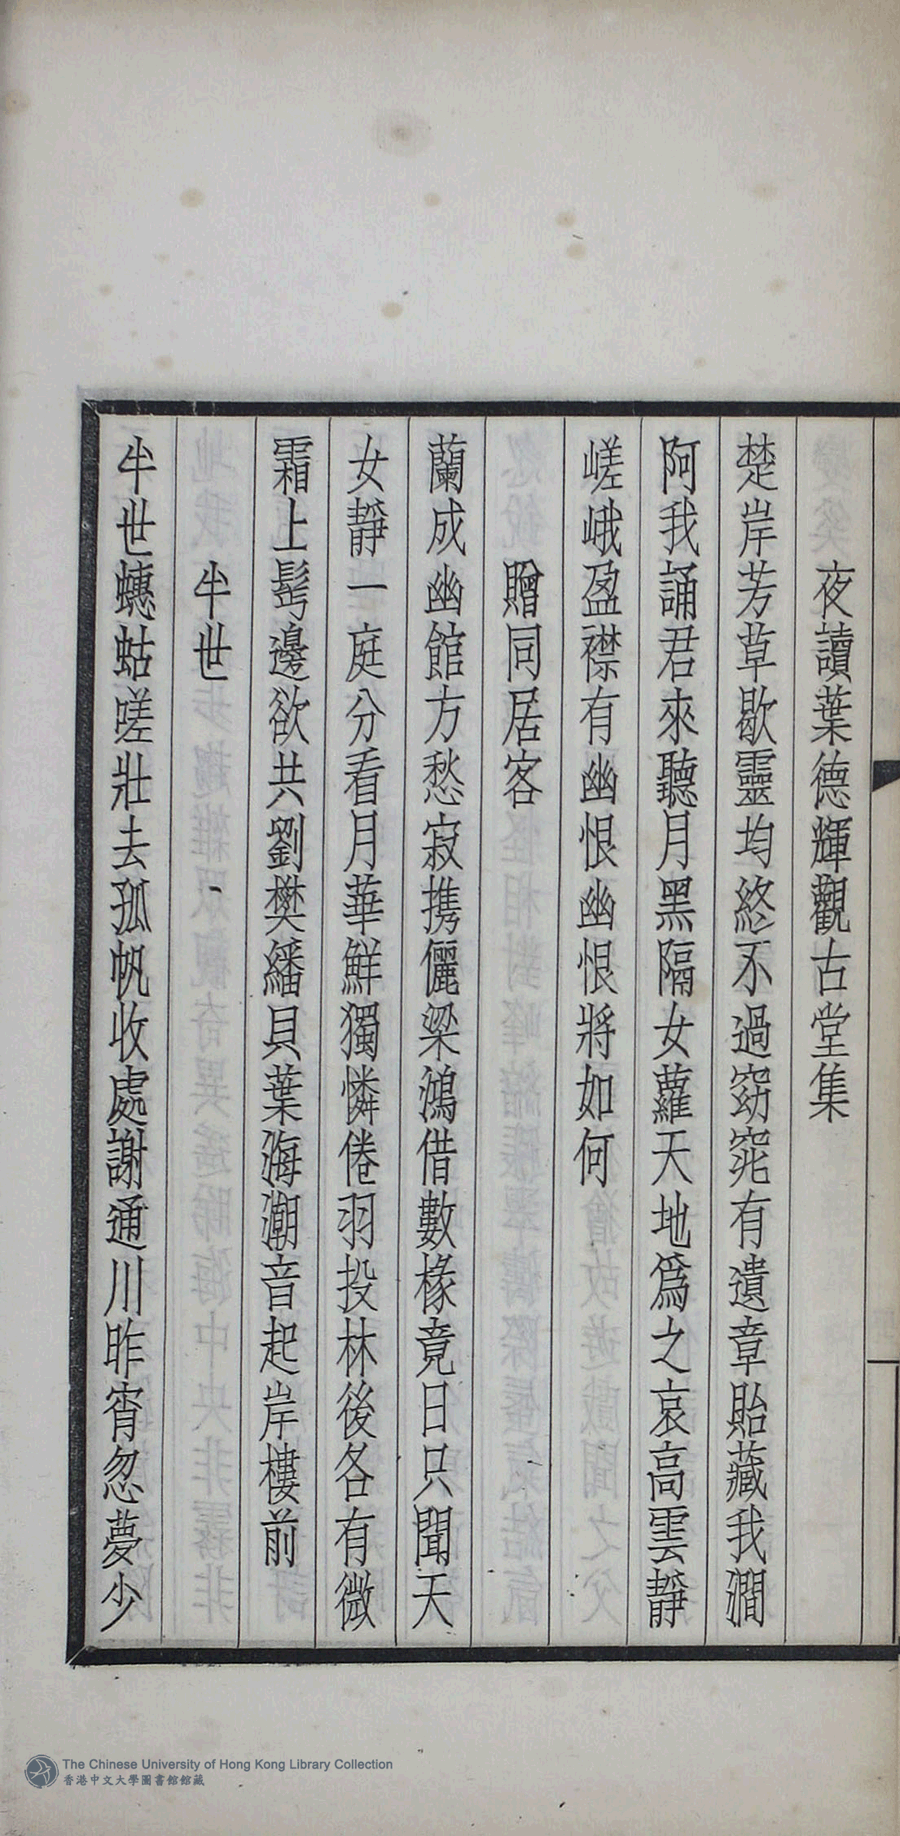 夜讀葉德輝觀古堂集
楚岸芳草歇靈均終不過窈窕有遺章貽藏我澗
阿我誦君來聽月黑隔女蘿天地爲之哀高雲靜
嵯峨盈襟有幽恨幽恨將如何
贈同居客
蘭成幽館方愁寂携儷梁鴻借數椽竟日只聞天
女靜一庭分看月華鮮獨憐倦羽投林後各有微
霜上髩邊欲共劉樊繙貝葉海潮音起岸樓前
半世
半世蟪蛄嗟壯去孤帆收處謝通川昨宵忽夢少
The Chinese University of Hong Kong Library Collection
香港中文大學圖書館館藏